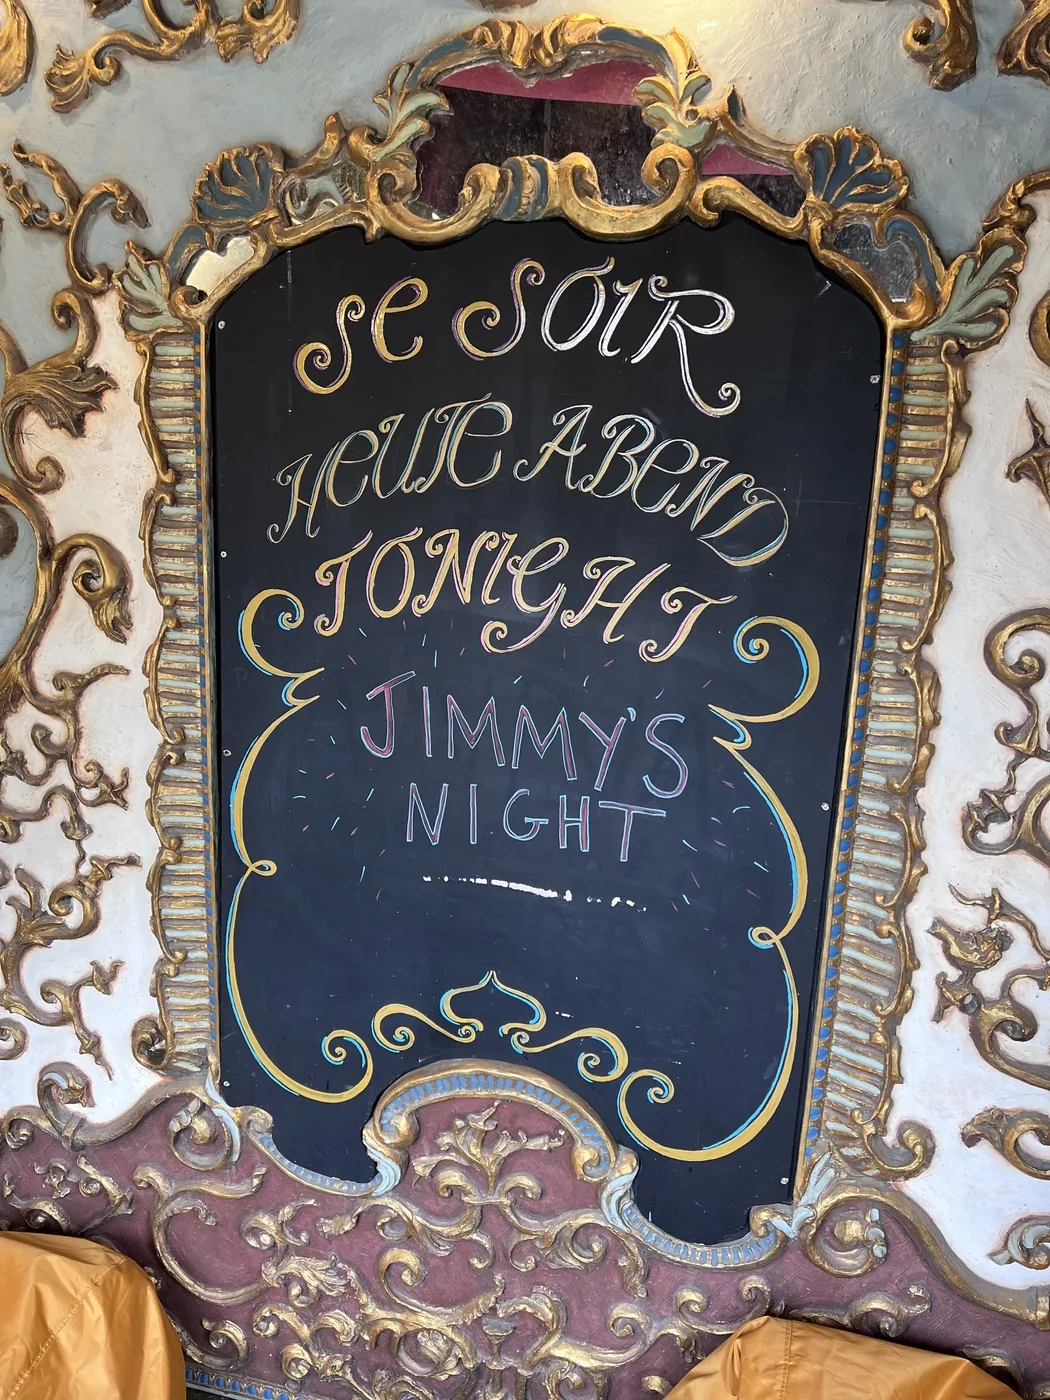 Se SOiR
HeUTe ABeND
TONIGHT
JIMMY'S
NIGHT